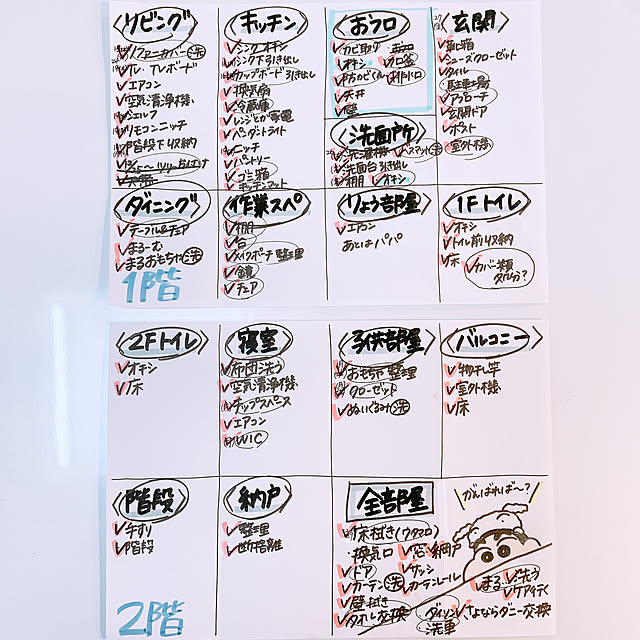 リビング
ソファーカバー 洗
TV・TVボード
エアコン
空気清浄機
シェルフ
リモコンニッチ
階段下収納
キッチン
シンク オキシ
シンク下引き出し
カップボード引き出し
換気扇
冷蔵庫
レンジとか家電
ペンダントライト
ニッチ
パントリー
ゴミ箱
キッチンマット
おフロ
カビ取り
オキシ フロ釜
防カビくん 排水口
天井
壁
洗面所
洗濯機 バスマット 洗
洗面台引き出し
棚 オキシ
玄関
シューズクローゼット
タイル
駐車場
アプローチ
玄関ドア
ポスト
室外機
ダイニング
テーブル&チェア
まるーむ
まるおもちゃ 洗
1階
作業スペ
棚
台
メイクポーチ整理
鏡
チェア
りょう部屋
エアコン
あとはパパ
1Fトイレ
オキシ
トイレ前収納
床
カバー類
処分?
2Fトイレ
オキシ
床
寝室
布団洗う
空気清浄機
チップスペース
エアコン
WIC
子供部屋
おもちゃ整理
クローゼット
ぬいぐるみ 洗
バルコニー
物干し竿
室外機
床
階段
手すり
階段
2階
納戸
整理
全部屋
床拭き(ウタマロ)
換気口 窓・網戸
ドア サッシ
カーテン 洗 カーテンレール
壁拭き
タオル交換 ダイソン 洗車 さよならダニー交換
がんばれば〜?
まる 洗う
ケアイテム